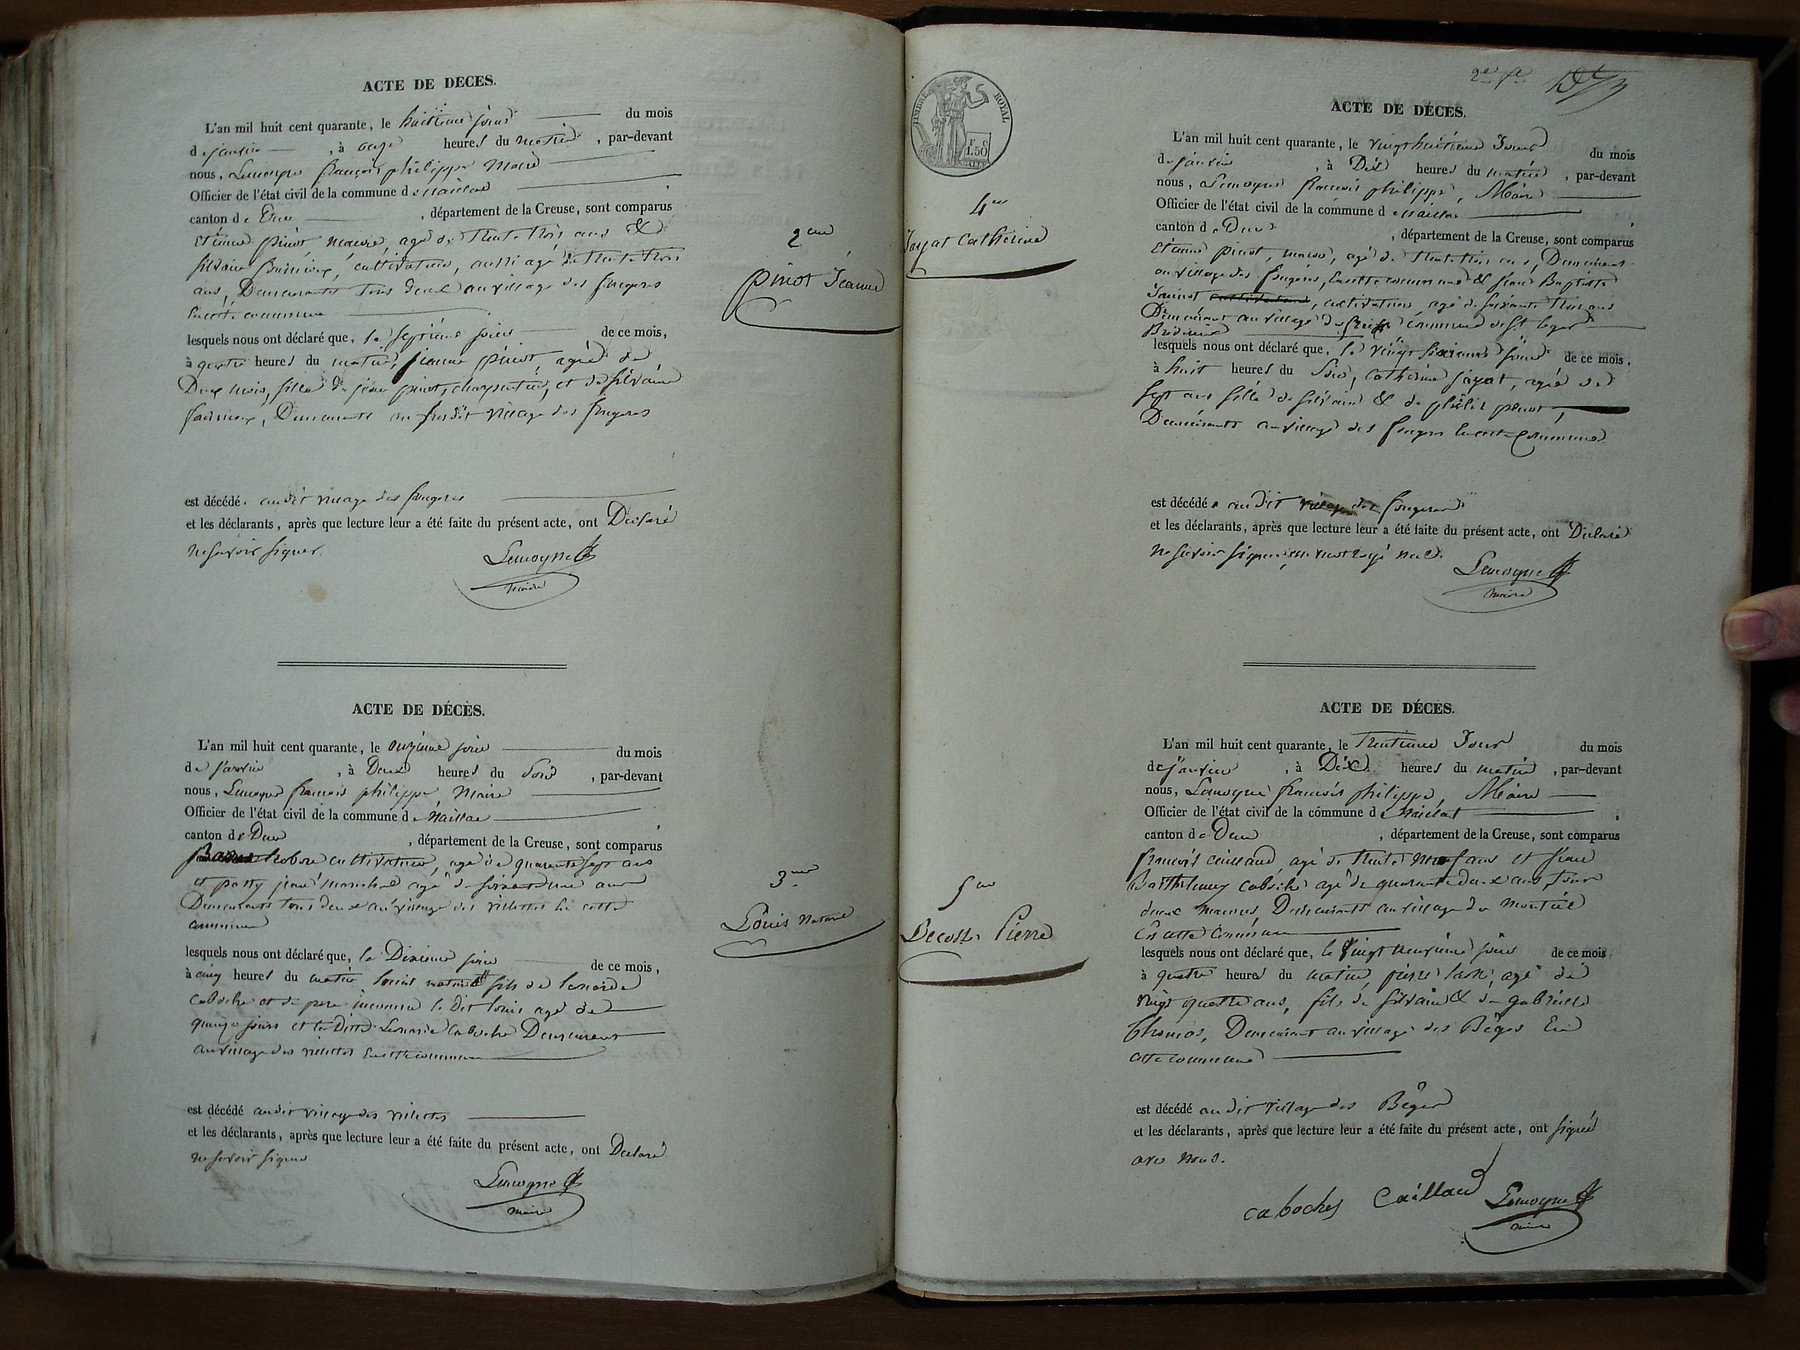 ACTE DE DECES.
L'an mil huit cent quarante, le huitieme jour du mois
de janvier, à onze heures du matin, par-devant
nous, Lemoyne françois philippe Maire
Officier de l'état civil de la commune de Naillac
canton de Dun, département de la Creuse, sont comparus
etienne pinot, maçon, agé de trente trois ans &
silvain, cultivateur, aussi agé de trente trois
ans, Demeurants tous deux au village des fougeres
en cette commune
lesquels nous ont déclaré que, le septieme jour de ce mois,
à quatre heures du matin, jeanne pinot, agée de
Deux mois, fille de jean pinot, charpentier, et de silvaine
Demeurants au susdit village des fougeres
est décédé. audit village des fougeres
et les déclarants, après que lecture leur a été faite du présent acte, ont Declaré
ne savoir signer.
Lemoyne
maire
2eme
pinot Jeanne
ACTE DE DÉCÈS.
L'an mil huit cent quarante, le onzieme jour du mois
de janvier, à Deux heures du Soir, par-devant
nous, Lemoyne francois philippe, Maire
Officier de l'état civil de la commune de Naillac
canton de Dun, département de la Creuse, sont comparus
cultivateur, agé de quarante sept ans
et marechal agé de soixante ans
Demeurants tous deux au village des villettes en cette
commune
lesquels nous ont déclaré que, le Dixieme jour de ce mois,
à cinq heures du matin louis naturel fils de leonarde
caboche et de pere inconnu le Dit louis agé de
quinze jours et la Ditte Leonarde caboche Demeurant
au village des villettes en cette commune
est décédé audit village des villettes
et les déclarants, après que lecture leur a été faite du présent acte, ont Declaré
ne savoir signer
Lemoyne
maire
3me
Louis Naturel
2e ft
TIMBRE ROYAL
1.50
4me
Jayat Catherine
ACTE DE DÉCÈS.
L'an mil huit cent quarante, le vingt huitieme Jour du mois
de janvier, à Dix heures du matin, par-devant
nous, Lemoyne francois philippe, Maire
Officier de l'état civil de la commune de Naillac
canton de Dun, département de la Creuse, sont comparus
etienne pinot, maçon, agé de trente trois ans, Demeurant
au village des fougeres, en cette commune & jean Baptiste
cultivateur, agé de soixante trois ans
Demeurant au village de commune de St leger
Bridereix
lesquels nous ont déclaré que, le vingt sixieme jour de ce mois,
à huit heures du Soir, catherine jayat, agée de
sept ans fille de silvain & de pinot,
Demeurants au village des fougeres en cette commune
est décédée audit village des fougeres
et les déclarants, après que lecture leur a été faite du présent acte, ont Declaré
ne savoir signer, un mot rayé nul.
Lemoyne
maire
5me
Decosse Pierre
ACTE DE DÉCÈS.
L'an mil huit cent quarante, le trentieme Jour du mois
de janvier, à Dix heures du matin, par-devant
nous, Lemoyne francois philippe, Maire
Officier de l'état civil de la commune de Naillat
canton de Dun, département de la Creuse, sont comparus
francois caillaud, agé de trente neuf ans et jean
Barthelemy caboche agé de quarante deux ans, tous
deux macons, Demeurants au village du monteil
en cette commune
lesquels nous ont déclaré que, le vingt neuvieme jour de ce mois
à quatre heures du matin, pierre agé de
vingt quatre ans, fils de silvain & de gabrielle
thomas, Demeurant au village des Bèges en
cette commune
est décédé audit village des Bèges
et les déclarants, après que lecture leur a été faite du présent acte, ont signé
avec nous.
caboches Caillaud Lemoyne
maire